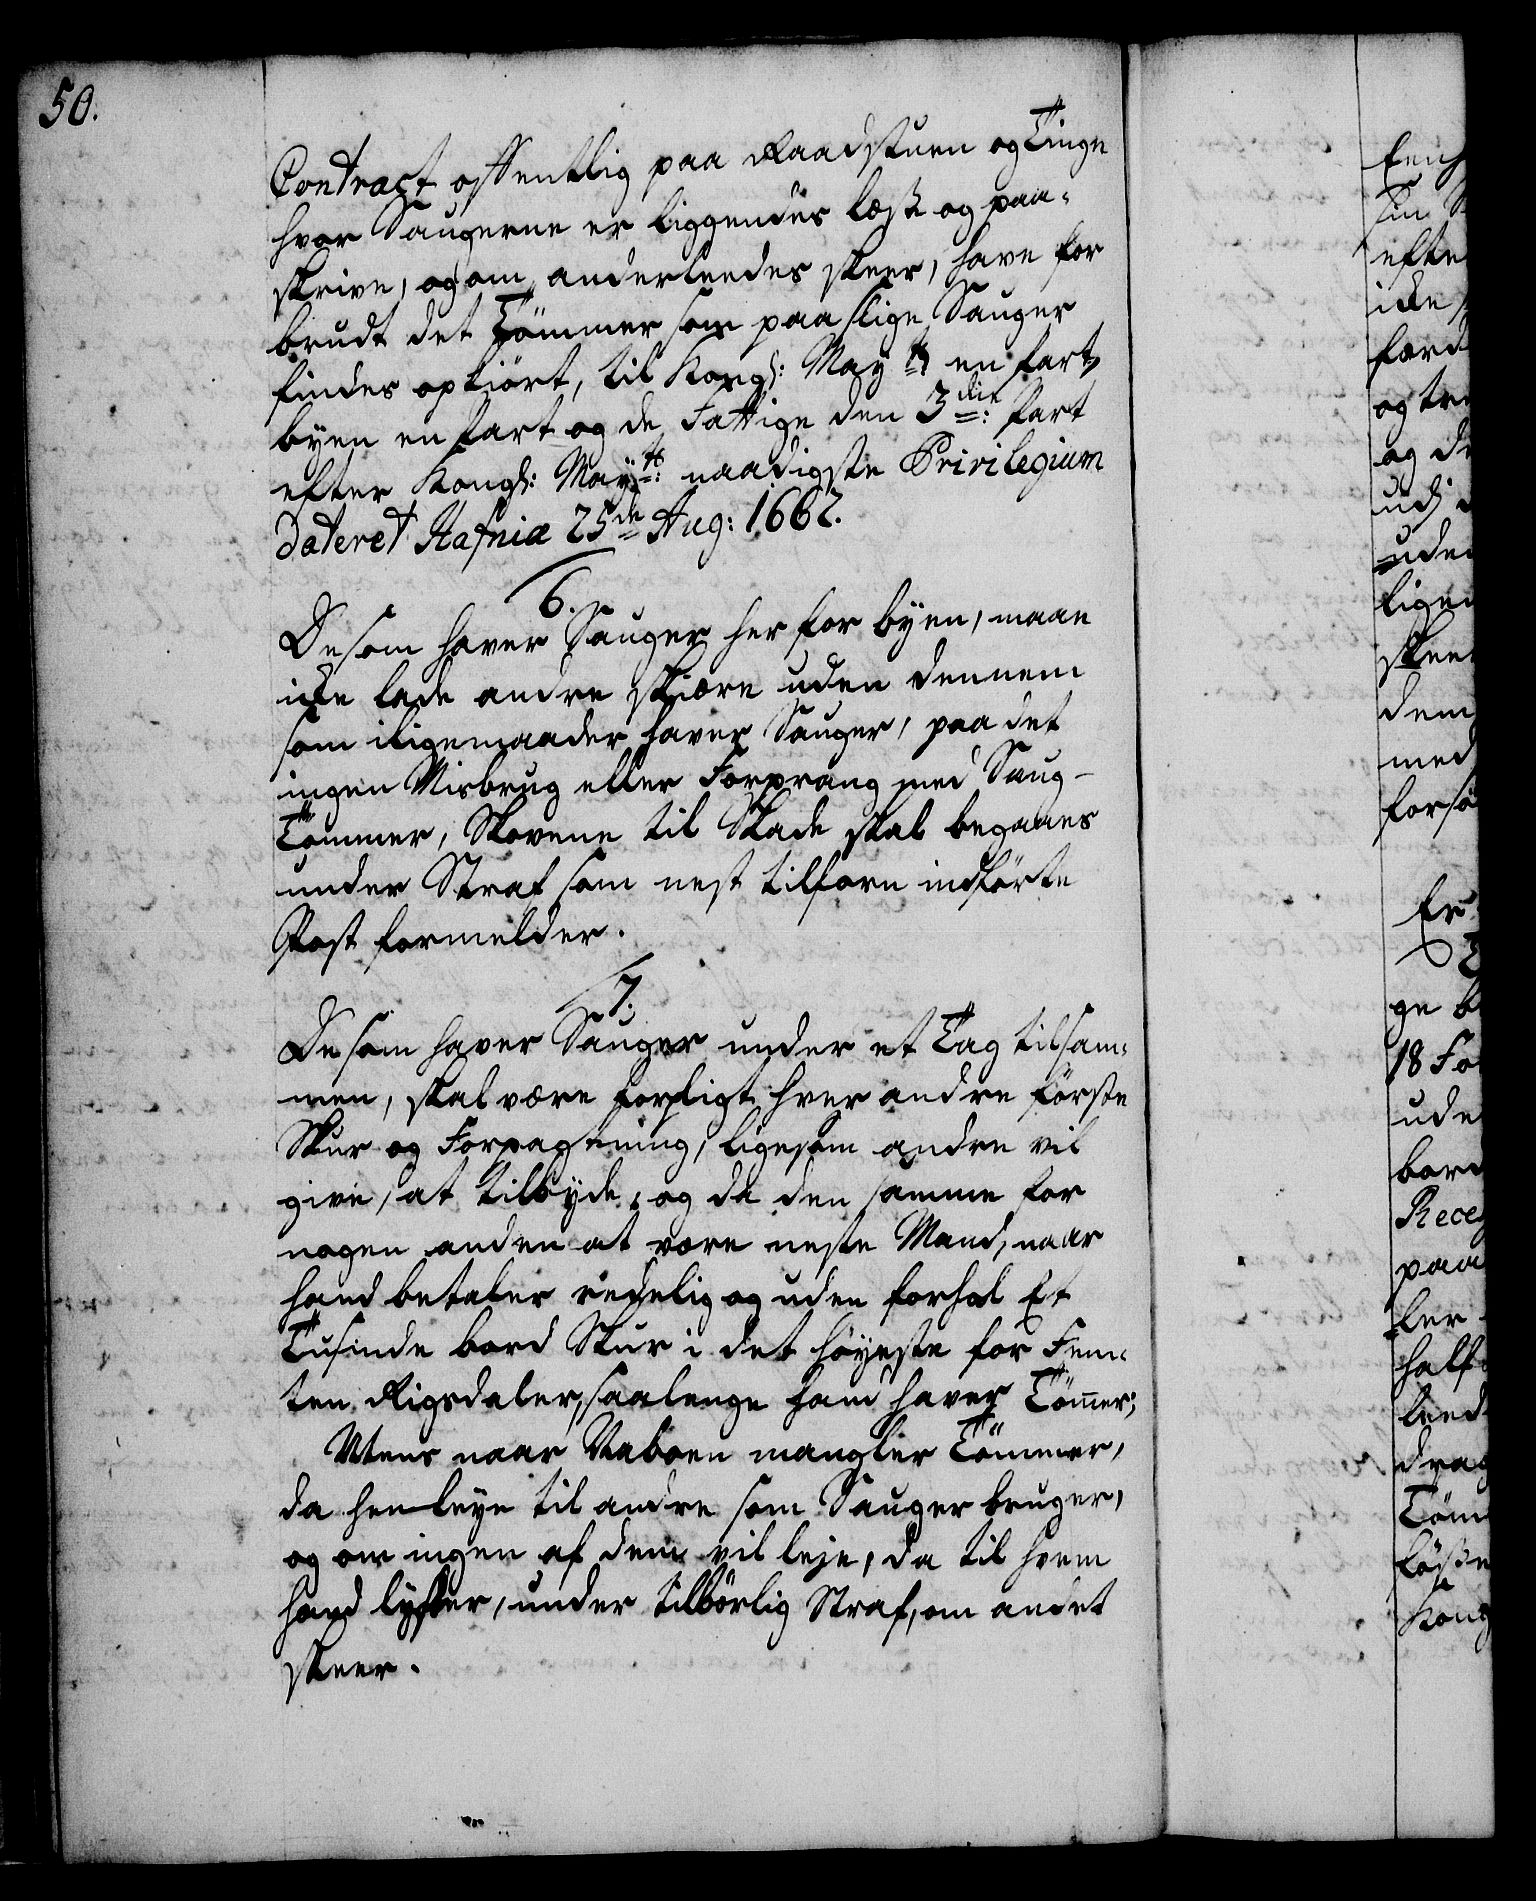 50.
Contract offentlig paa Raadstuen og Tinge
hvor Saugerne er liggendes læst og paa-
skrive, og om anderleedes skeer, have for
brudt det Tömmer som paa slige Sauger
findes opkiört, til Kongl: May.tt en Part,
byen en Part og de Fattige den 3die: Part
efter Kongl: Maytt: naadigste Privilegium
Dateret Hafniæ 25de Aug: 1662.
6.
De som haver Sauger her for byen, maae
icke lade andre skiære uden dennem
som iligemaader haver Sauger, paa det
ingen Misbrug eller Forprang med Saug-
Tömmer, Skovene til Skade skal begaaes
under Straf som nest tilforn indförte
Post formelder.
7.
De som haver Sauger under et Tag tilsam-
men, skal være forpligt hver andre förste
Skur og Forpagtning, ligesom andre vil
give, at tilbyde, og da den samme for
nogen anden at være neste Mand, naar
hand betaler redelig og uden forhal Et
Tusinde bord Skur i det höyeste for Fem-
ten Rigsdaler, saalenge hand haver Tömer;
Mens naar Naboen mangler Tömmer,
da henleye til andre som Sauger bruger,
og om ingen af dem vil leje, da til hvem
hand lyster, under tilbörlig Straf, om andet
skeer.
efte
og tre
dem
med
ge
18
ude
bord
paa
half
drag
Töm
Kong